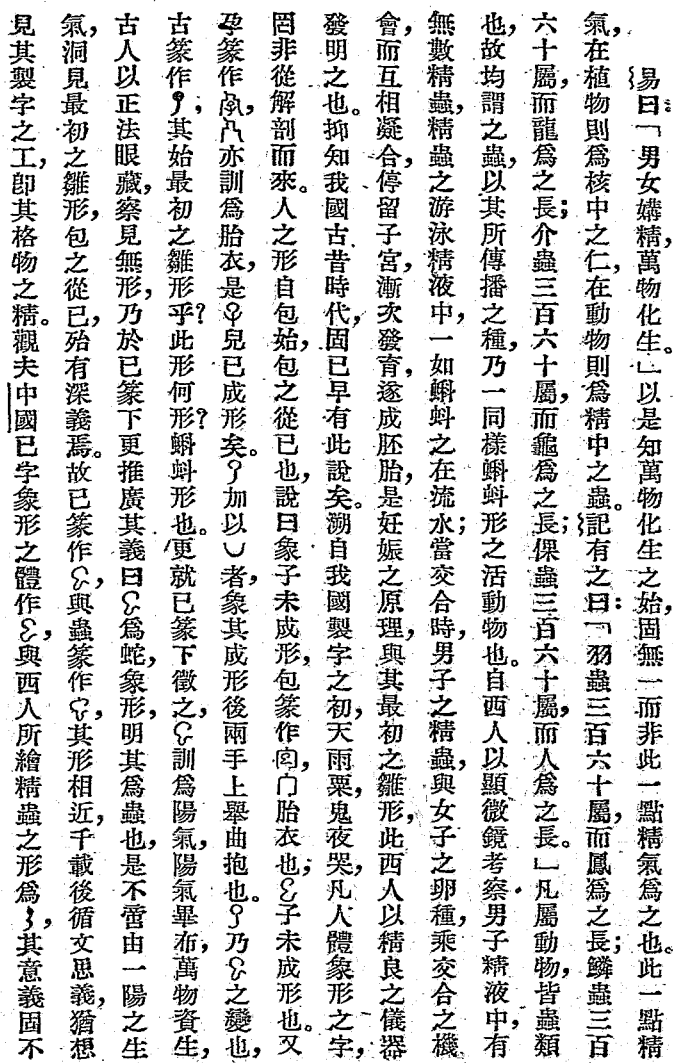 易曰：「男女媾精，萬物化生。」以是知萬物化生之始，固無一而非此一點精氣爲之也。此一點精
氣，在植物則爲核中之仁，在動物則爲精中之蟲。記有之曰：「羽蟲三百六十屬，而鳳爲之長；鱗蟲三百
六十屬，而龍爲之長；介蟲三百六十屬，而龜爲之長；倮蟲三百六十屬，而人爲之長。」凡屬動物，皆蟲類
也，故均謂之蟲，以其所傳播之種，乃一同樣蝌蚪形之活動物也。自西人以顯微鏡考察男子精液中，有
無數精蟲，精蟲之游泳精液中，一如蝌蚪之在流水；當交合時，男子之精蟲，與女子之卵種，乘交合之機
會，而互相凝合，停留子宮，漸次發育，遂成胚胎，是妊娠之原理，與其最初之雛形，此西人以精良之儀器
發明之也。抑知我國古昔時代，固已早有此說矣。溯自我國製字之初，天雨粟，鬼夜哭，凡人體象形之字，
罔非從解剖而來。人之形自包始，包之從巳也，說曰象子未成形，包篆作，冂胎衣也；子未成形也。又
孕篆作，亦訓爲胎衣，是兒已成形矣。加以者，象其成形後兩手上舉曲抱也。乃之變也，
古篆作，其始最初之雛形乎？此形何形？蝌蚪形也。更就巳篆下徵之，訓爲陽氣，陽氣畢布，萬物資生，
古人以正法眼藏，察見無形，乃於巳篆下更推廣其義曰爲蛇，象形，明其爲蟲也，是不啻由一陽之生
氣，洞見最初之雛形，包之從巳，殆有深義焉。故巳篆作，與蟲篆作，其形相近，千載後循文思義，猶想
見其製字之工，卽其格物之精。觀夫中國巳字象形之體作，與西人所繪精蟲之形爲，其意義固不